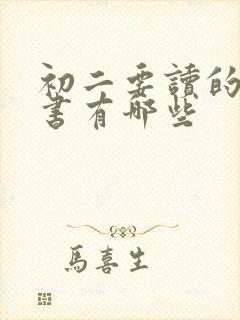 初二要讀的
書有哪些
馬喜生